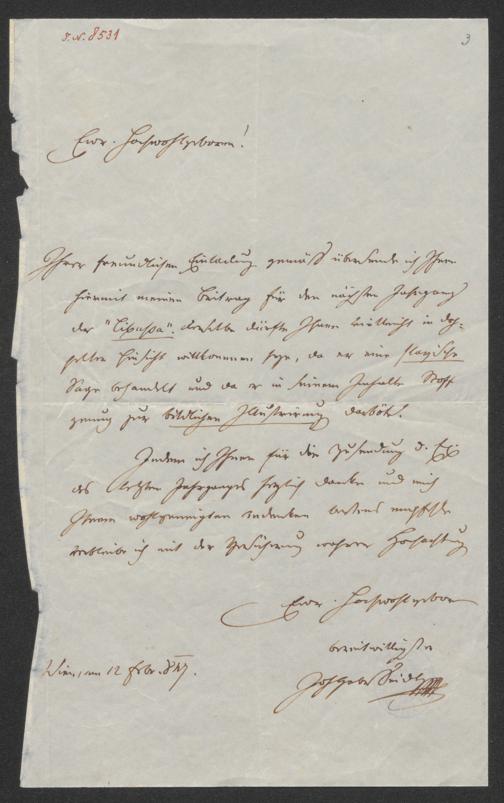 J. N. 8531
3
Euer Hochwohlgeboren!
Ihrer freundlichen Einladung gemäß übersende ich Ihnen
hiermit meinen Beitrag für den nächsten Jahrgang
der "Libussa". Derselbe dürfte Ihnen vielleicht in dop-
pelter Hinsicht willkommen seyn, da er eine slavische
Sage behandelt und da er in seinem Inhalte Stoff
genug zur bildlichen Illustrirung darböte.
Indem ich Ihnen für die Zusendung d. Ex.
des letzten Jahrganges herzlich danke und mich
Ihrem wohlgeneigten Andenken bestens empfehle
verbleibe ich mit der Versicherung wahrer Hochachtung
Euer Hochwohlgeboren
bereitwilligster
Joh Gabr Seidl
Wien, am 12 847.